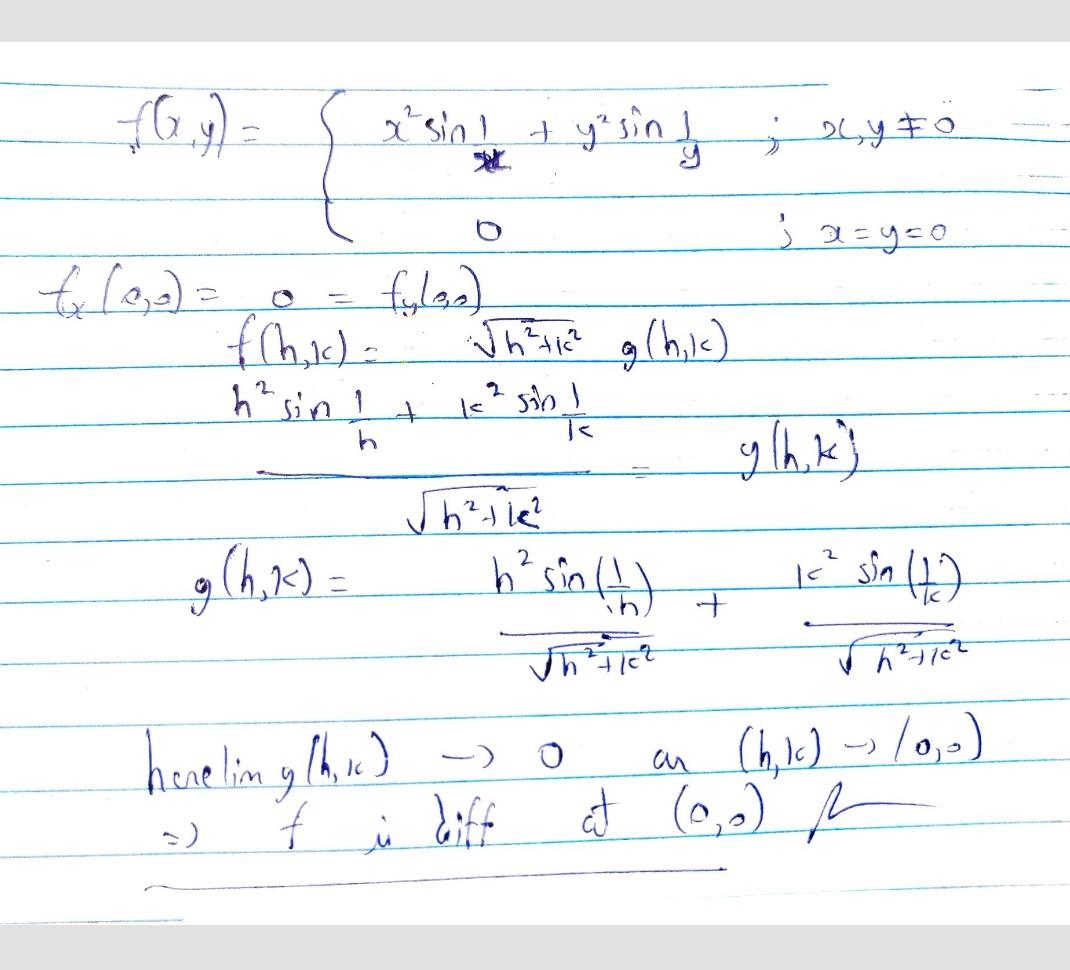 f(x,y) = { x² sin 1/x + y² sin 1/y ; x,y ≠ 0
0 ; x=y=0
fx(0,0) = 0 = fy(0,0)
f(h,k) = √h²+k² g(h,k)
h² sin 1/h + k² sin 1/k
= g(h,k)
√h²+k²
g(h,k) = h² sin(1/h)/√h²+k² + k² sin(1/k)/√h²+k²
here lim g(h,k) → 0 as (h,k) → (0,0)
=) f is diff at (0,0)